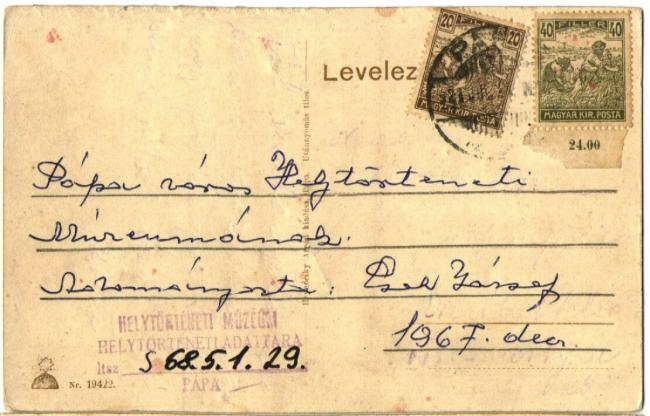 20 FILLÉR 20
MAGYAR KIR. POSTA
40 FILLÉR 40
MAGYAR KIR. POSTA
24.00
Levelez
PÁPA
Utánnyomás tilos.
kiadása
Pápa város Helytörténeti
Múzeumának.
Adományozta: Cseh József
1967. dec.
HELYTÖRTÉNETI MÚZEUM
HELYTÖRTÉNETI ADATTÁRA
ltsz S 68.5.1.29.
PÁPA
Nr. 19422.